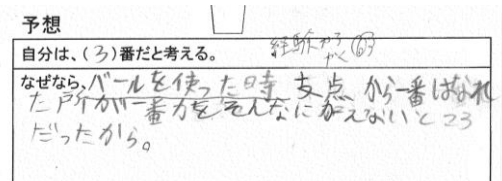 予想
自分は、(3)番だと考える。
経験から
かく
なぜなら、バールを使った時 支点 から一番はなれ
た所が一番力をそんなにがえないところ
だったから。